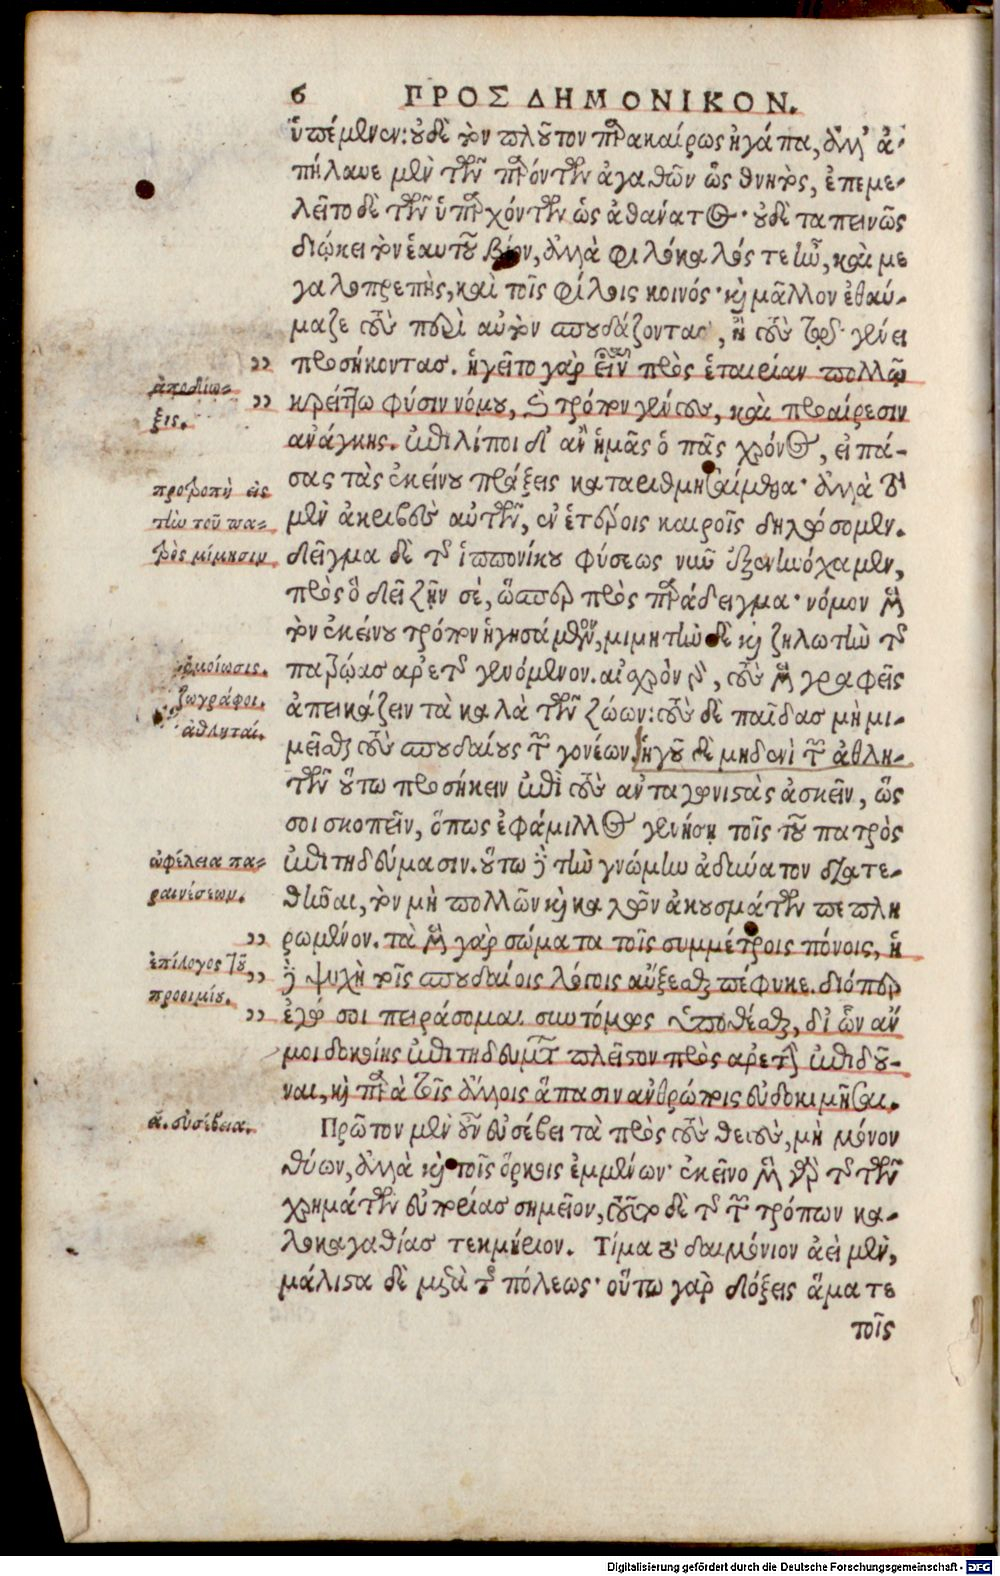 6 ΠΡΟΣ ΔΗΜΟΝΙΚΟΝ.
ὑπέμενεν: οὐδὲ τὸν πλοῦτον παρακαίρως ἠγάπα, ἀλλ' ἀ-
πήλαυε μὲν τῶν παρόντων ἀγαθῶν ὡς θνητὸς, ἐπεμε-
λεῖτο δὲ τῶν ὑπαρχόντων ὡς ἀθάνατος· οὐδὲ ταπεινῶς
διῴκει τὸν ἑαυτοῦ βίον, ἀλλὰ φιλόκαλός τε ἦν, καὶ με
γαλοπρεπὴς, καὶ τοῖς φίλοις κοινός· καὶ μᾶλλον ἐθαύ-
μαζε τοὺς περὶ αὐτὸν σπουδάζοντας, ἢ τοὺς τῷ γένει
,, προσήκοντας. ἡγεῖτο γὰρ εἶναι πρὸς ἑταιρίαν πολλῷ
ἀπόδει-
,, κρείττω φύσιν νόμου, καὶ τρόπον γένους, καὶ προαίρεσιν
ξις.
ἀνάγκης. ἐπιλίποι δ' ἂν ἡμᾶς ὁ πᾶς χρόνος, εἰ πά-
σας τὰς ἐκείνου πράξεις καταριθμησαίμεθα· ἀλλὰ τὸ
προτροπὴ εἰς
μὲν ἀκριβὲς αὐτῶν, ἐν ἑτέροις καιροῖς δηλώσομεν.
τὴν τοῦ πα-
δεῖγμα δὲ τῆς ἱππονίκου φύσεως νῦν ἐξενηνόχαμεν,
τρὸς μίμησιν
πρὸς ὃ δεῖ ζῆν σέ, ὥσπερ πρὸς παράδειγμα· νόμον μὲν
τὸν ἐκείνου τρόπον ἡγησάμενον, μιμητὴν δὲ καὶ ζηλωτὴν τῆς
ὁμοίωσις.
πατρῴας ἀρετῆς γενόμενον. αἰσχρὸν γὰρ, τοὺς μὲν γραφεῖς
ζωγράφοι.
ἀπεικάζειν τὰ καλὰ τῶν ζώων: τοὺς δὲ παῖδας μὴ μι-
ἀθληταί.
μεῖσθαι τοὺς σπουδαίους τῶν γονέων. ἡγοῦ δὲ μηδενὶ τῶν ἀθλη-
τῶν οὕτω προσήκειν ἐπὶ τοὺς ἀνταγωνιστὰς ἀσκεῖν, ὥς
σοι σκοπεῖν, ὅπως ἐφάμιλλος γενήσῃ τοῖς τοῦ πατρὸς
ὠφέλεια πα-
ἐπιτηδεύμασιν. οὕτω δὲ τὴν γνώμην ἀδύνατον διατε-
ραινέσεων.
θῆναι, τὸν μὴ πολλῶν καὶ καλῶν ἀκουσμάτων πεπλη
,, ρωμένον. τὰ μὲν γὰρ σώματα τοῖς συμμέτροις πόνοις, ἡ
ἐπίλογος τοῦ
,, δὲ ψυχὴ τοῖς σπουδαίοις λόγοις αὔξεσθαι πέφυκε. διόπερ
προοιμίου.
,, ἐγώ σοι πειράσομαι συντόμως ὑποθέσθαι, δι' ὧν ἄν
μοι δοκοίης ἐπιτηδευμάτων πλεῖστον πρὸς ἀρετὴν ἐπιδοῦ-
ναι, καὶ παρὰ τοῖς ἄλλοις ἅπασιν ἀνθρώποις εὐδοκιμῆσαι.
α. εὐσέβεια.
Πρῶτον μὲν οὖν εὐσέβει τὰ πρὸς τοὺς θεοὺς, μὴ μόνον
θύων, ἀλλὰ καὶ τοῖς ὅρκοις ἐμμένων· ἐκεῖνο μὲν γὰρ τῆς τῶν
χρημάτων εὐπορίας σημεῖον, τοῦτο δὲ τῆς τῶν τρόπων κα-
λοκαγαθίας τεκμήριον. Τίμα τὸ δαιμόνιον ἀεὶ μὲν,
μάλιστα δὲ μετὰ τῆς πόλεως· οὕτω γὰρ δόξεις ἅμα τε
τοῖς
Digitalisierung gefördert durch die Deutsche Forschungsgemeinschaft - DFG